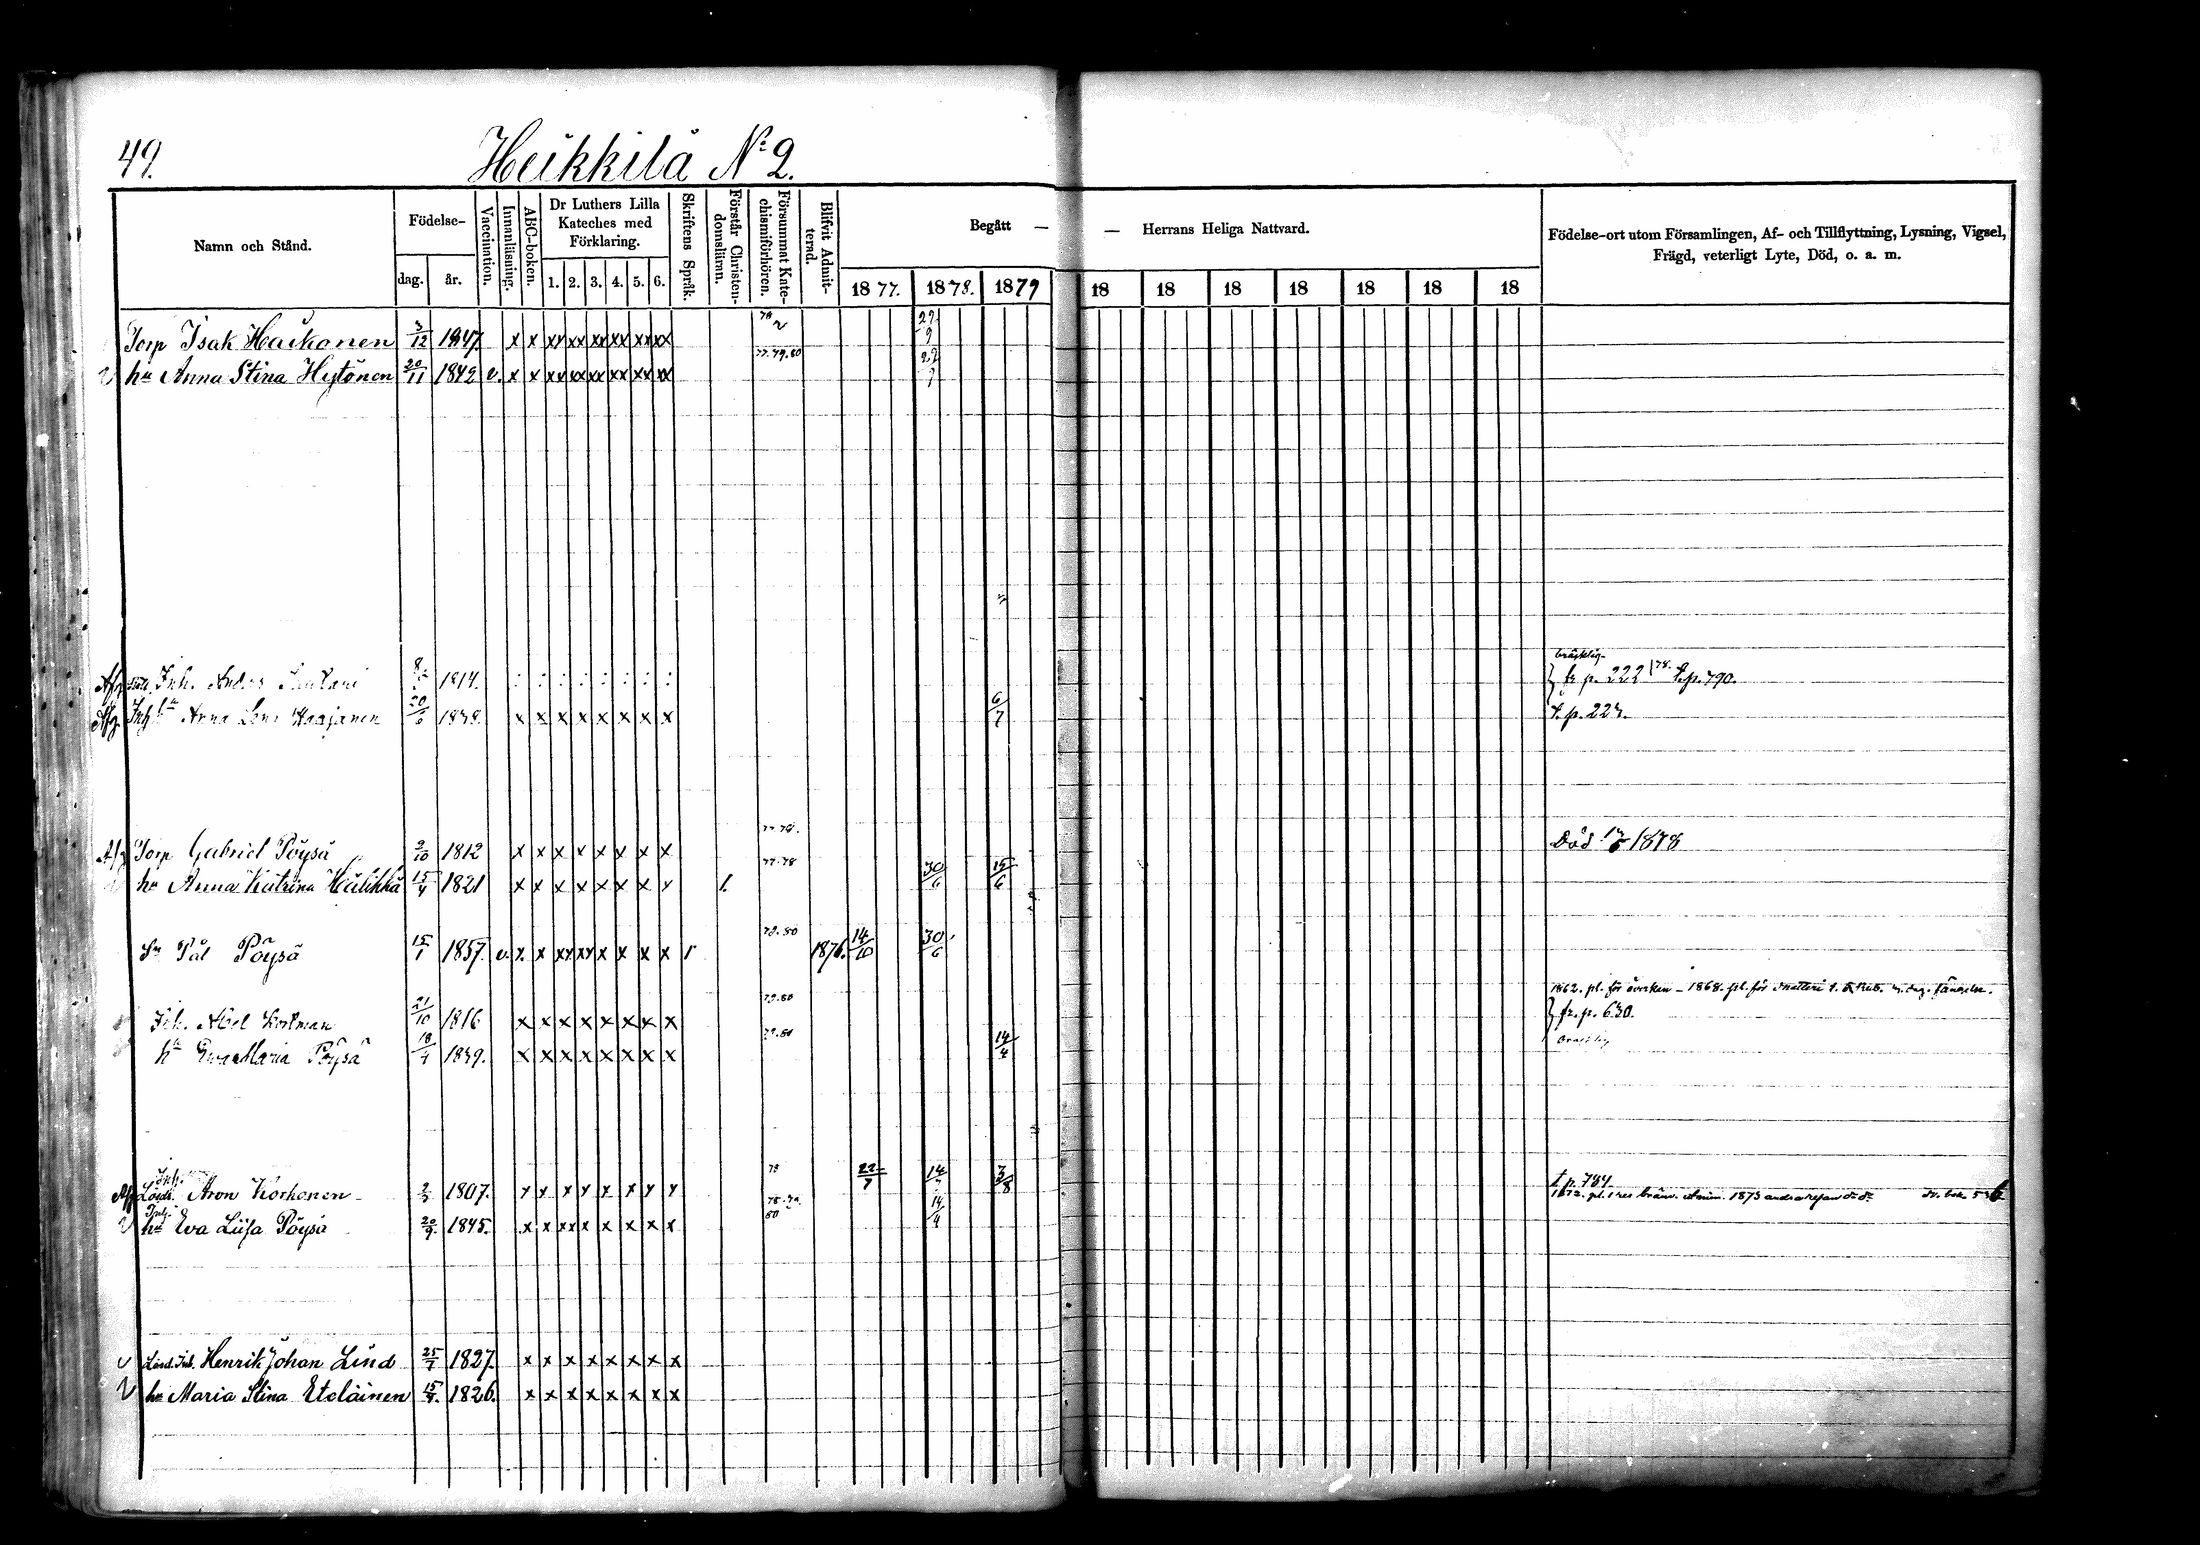 49. Heikkilä No 2.
Namn och Stånd. Födelse- dag. år. Vaccination. Innanläsning. ABC-boken. Dr Luthers Lilla Kateches med Förklaring. 1. 2. 3. 4. 5. 6. Skriftens Språk. Förstår Christendomsläran. Försummat Katechismiförhören. Blifvit Admitterad. Begått — — Herrans Heliga Nattvard. Födelse-ort utom Församlingen, Af- och Tillflyttning, Lysning, Vigsel, Frägd, veterligt Lyte, Död, o. a. m.
1877. 1878. 1879 18 18 18 18 18 18 18
Torp Isak Haikonen 3/12 1847. x x xx xx xx xx xx xx 78 29/9
hu Anna Stina Hytönen 20/11 1842 v. x x xx xx xx xx xx xx 77.79.80 29/9
Afg Inh. Anders 8 1814. : : : : : : : : bräcklig fr p. 222 78. t.p. 790.
Afg. Inh hu Anna Lena Haajanen 20/6 1838. x x x x x x x x 6/7 t. p. 227.
Afg Torp Gabriel Pöysä 2/10 1812 x x x x x x x x 77 78. Död 1878
hu Anna Katrina Hälikkä 15/4 1821 x x x x x x x x 1. 77.78 30/6 15/6
Sn Pål Pöysä 15/1 1857. v. x x xx xx x x x x 1 79.80 1876. 14/10 30/6
1862. pl. för - 1868. pl. för fängelse.
Inh. Abel Kortman 21/10 1816 x x x x x x x x 79.80 fr. p. 630.
hu Ewa Maria Pöysä 18/4 1839. x x x x x x x x 79.80 14/4
Afg Inh. Lösdr. Aron Korhonen 2/3 1807. x x x x x x x x 78 22/7 14/7 3/8 t p. 784
1872. pl. 1873 andra
Inh. hu Eva Liisa Pöysä 20/9. 1845. x x xx x x x x x 80 14/4
Lösd. Inh. Henrik Johan Lind 25/7 1827. x x x x x x x x
hu Maria Stina Eteläinen 15/4. 1826. x x x x x x x x